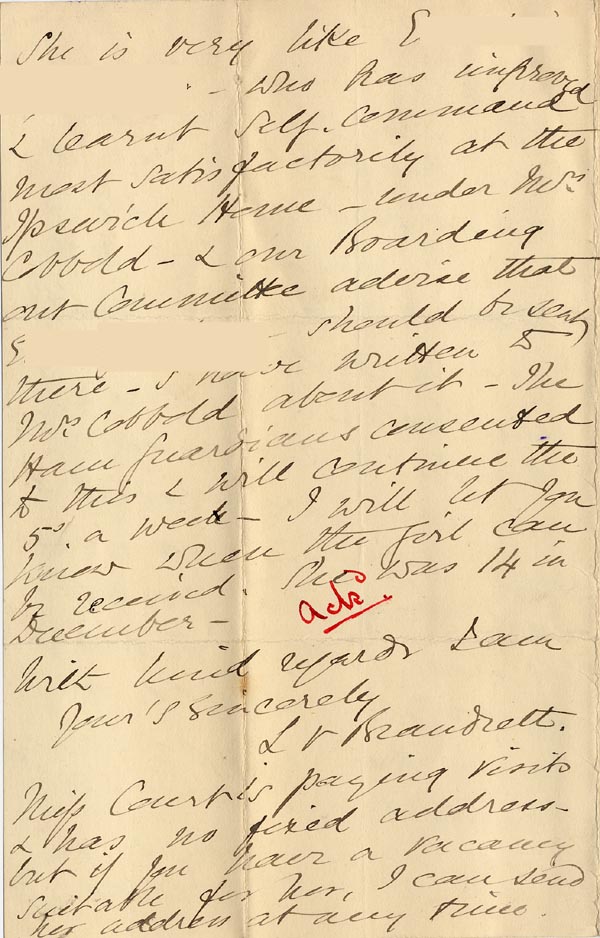 She is very like E
- who has improved
& learnt Self-Command
most satisfactorily at the
Ipswich Home - under Mrs
Cobbold - & our Boarding
out Committee advise that
E - should be sent
there - I have written to
Mrs Cobbold about it - The
Ham Guardians consented
to this & will continue the
5s a week - I will let you
know when the girl can
be received. She was 14 in
December -
Ackd.
With kind regards I am
Your's Sincerely
L V Brandrett.
Miss Courtis paying visits
& has no fixed address -
but if you have a vacancy
suitable for her, I can send
her address at any time.